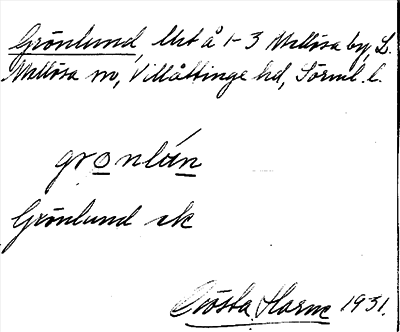 Grönlund, lht å 1-3 Mellösa by, L.
Mellösa sn, Villåttinge hd, Sörml. l.
gronlún
Grönlund sk
Gösta Harne 1931.